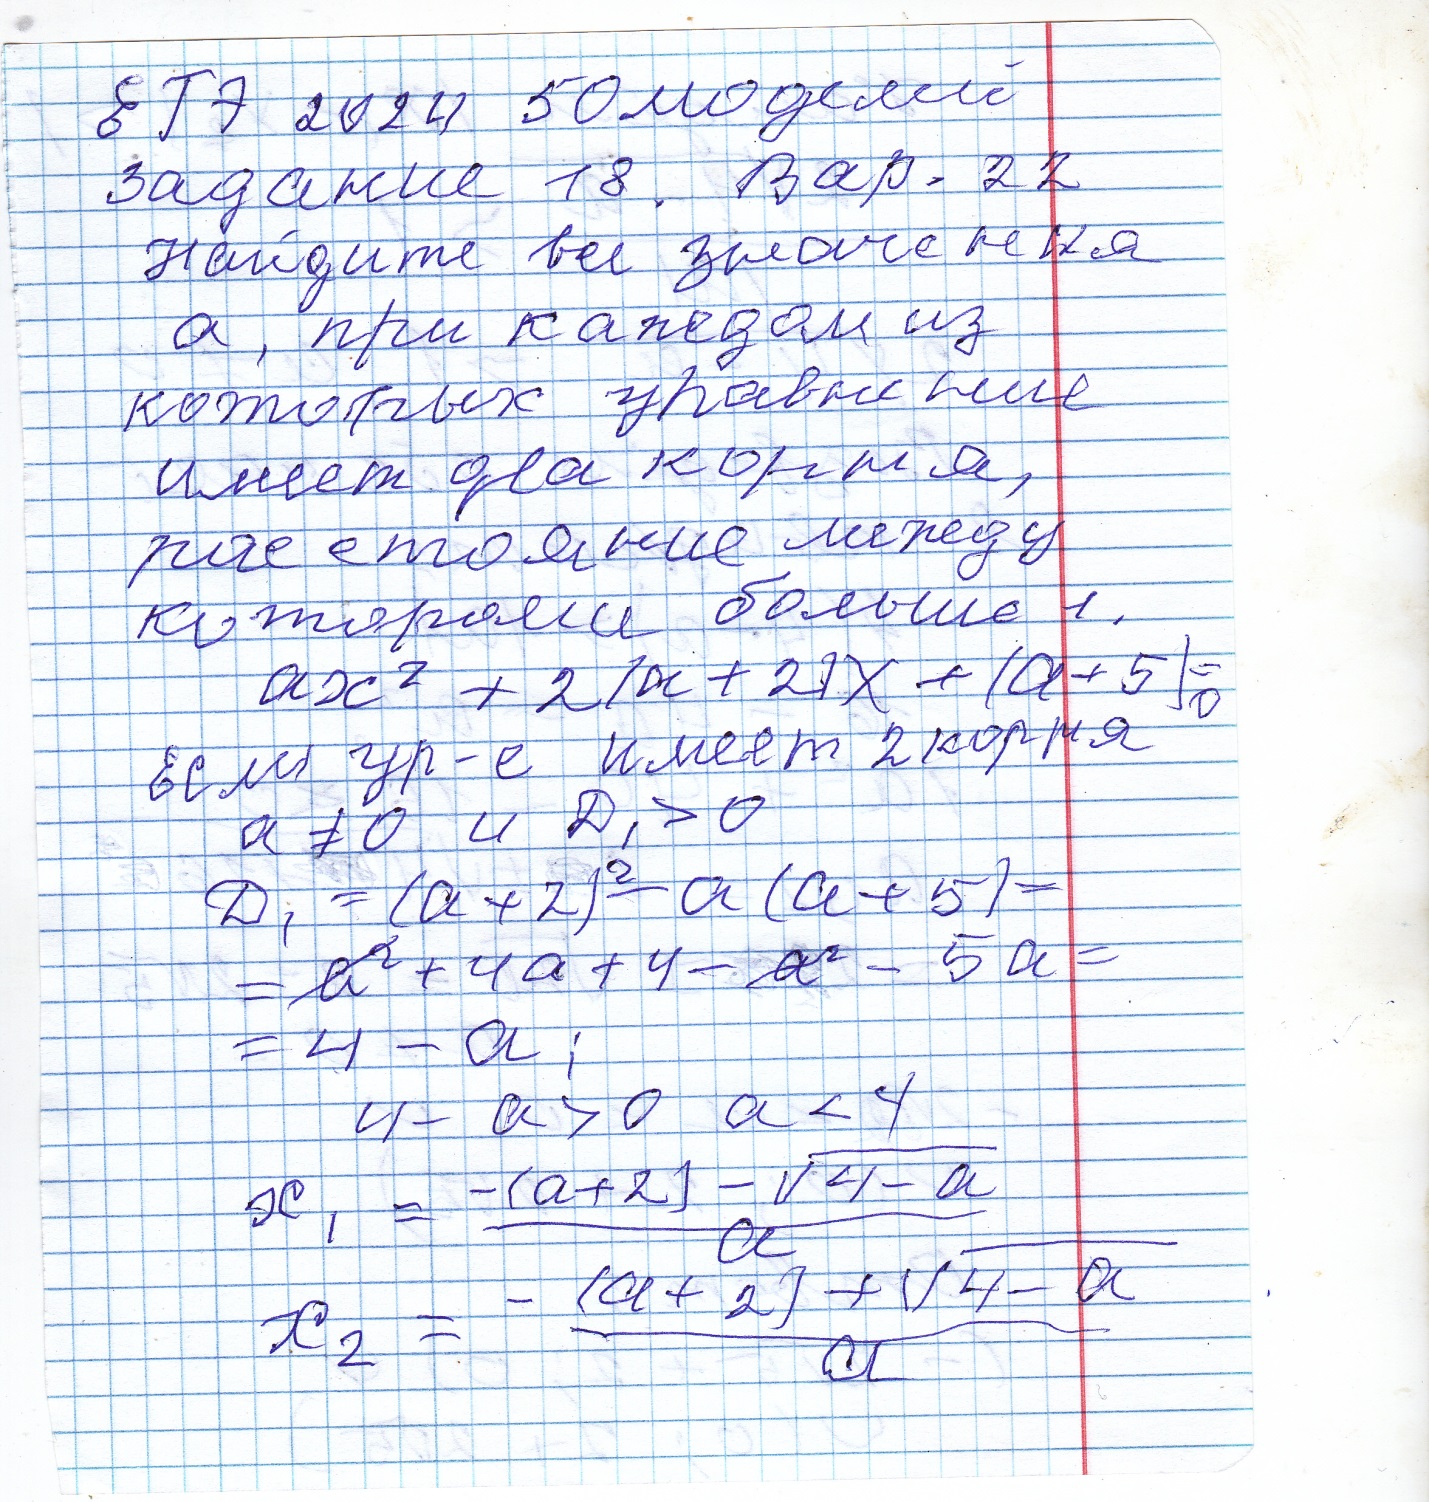 ЕГЭ 2024 50 моделей
Задание 18. Вар. 22
Найдите все значения
а, при каждом из
которых уравнение
имеет два корня,
расстояние между
которыми больше 1.
ax² + 2(a+2)x + (a+5)=0
Если ур-е имеет 2 корня
a ≠ 0 и D₁ > 0
D₁ = (a+2)² - a(a+5) =
= a² + 4a + 4 - a² - 5a =
= 4 - a;
4 - a > 0 a < 4
x₁ = (-(a+2) - √(4-a))/a
x₂ = (-(a+2) + √(4-a))/a